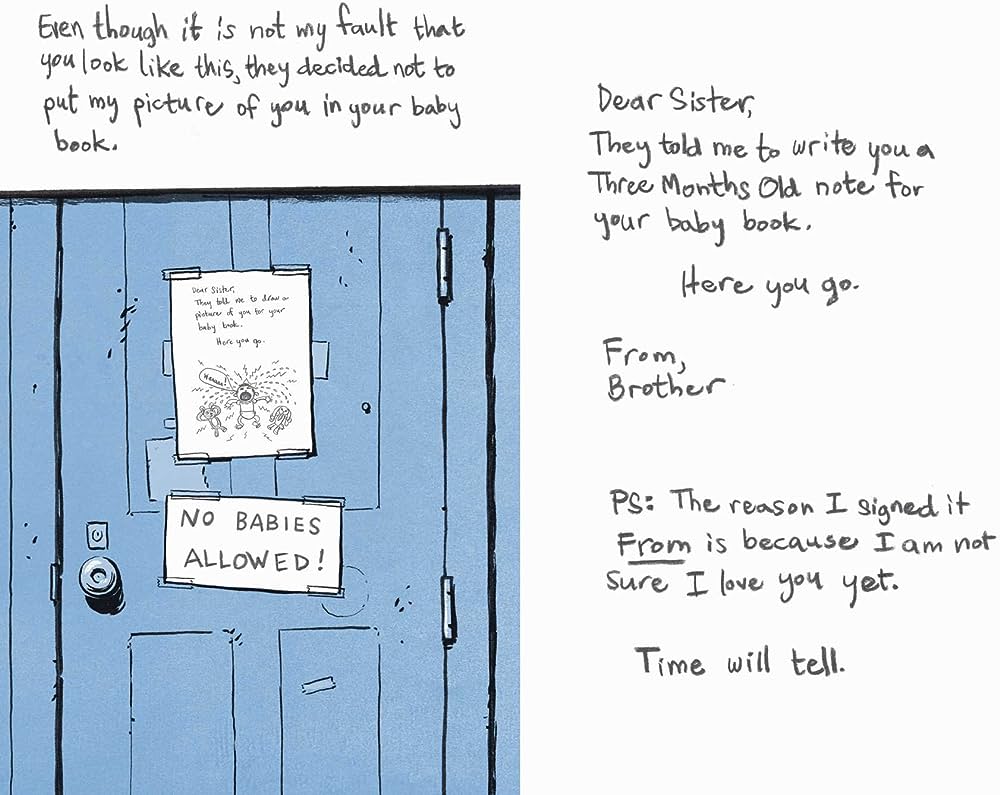 Even though it is not my fault that
you look like this, they decided not to
put my picture of you in your baby
book.
Dear Sister,
They told me to draw a
picture of you for your
baby book.
Here you go.
Waaaa!
NO BABIES
ALLOWED!
Dear Sister,
They told me to write you a
Three Months Old note for
your baby book.
Here you go.
From,
Brother
PS: The reason I signed it
From is because I am not
sure I love you yet.
Time will tell.